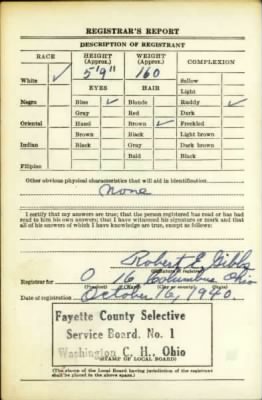 REGISTRAR'S REPORT
DESCRIPTION OF REGISTRANT
RACE HEIGHT (Approx.) WEIGHT (Approx.) COMPLEXION
White ✓ 5'9" 160 Sallow
Light
EYES HAIR
Negro Blue ✓ Blonde Ruddy ✓
Gray Red Dark
Oriental Hazel Brown ✓ Freckled
Brown Black Light brown
Indian Black Gray Dark brown
Bald Black
Filipino
Other obvious physical characteristics that will aid in identification
None
I certify that my answers are true; that the person registered has read or has had
read to him his own answers; that I have witnessed his signature or mark and that
all of his answers of which I have knowledge are true, except as follows:
Robert E. Gibbs
(Signature of registrar)
Registrar for 16 Columbus Ohio
(Precinct) (Ward) (City or county) (State)
Date of registration October 16, 1940.
Fayette County Selective
Service Board. No. 1
Washington C. H., Ohio
(STAMP OF LOCAL BOARD)
(The stamp of the Local Board having jurisdiction of the registrant
shall be placed in the above space.)